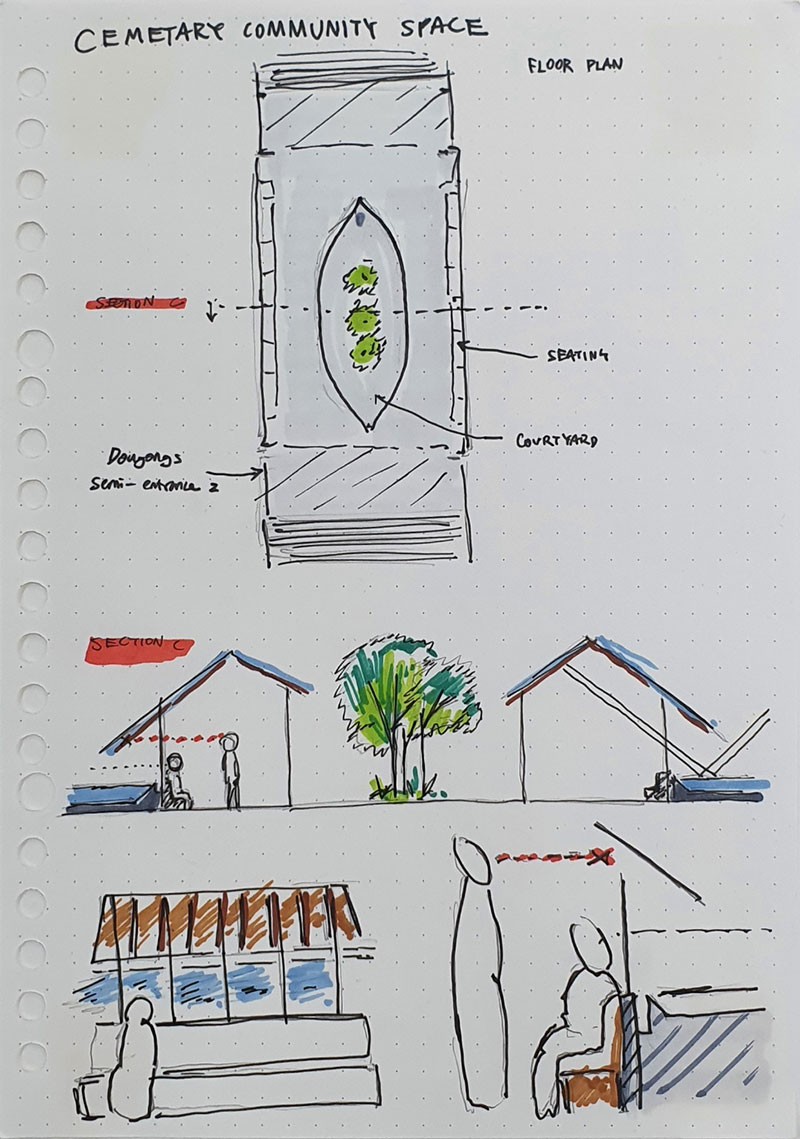 CEMETARY COMMUNITY SPACE
FLOOR PLAN
SECTION C
SEATING
COURTYARD
Dougongs
Semi-entrance 2
SECTION C